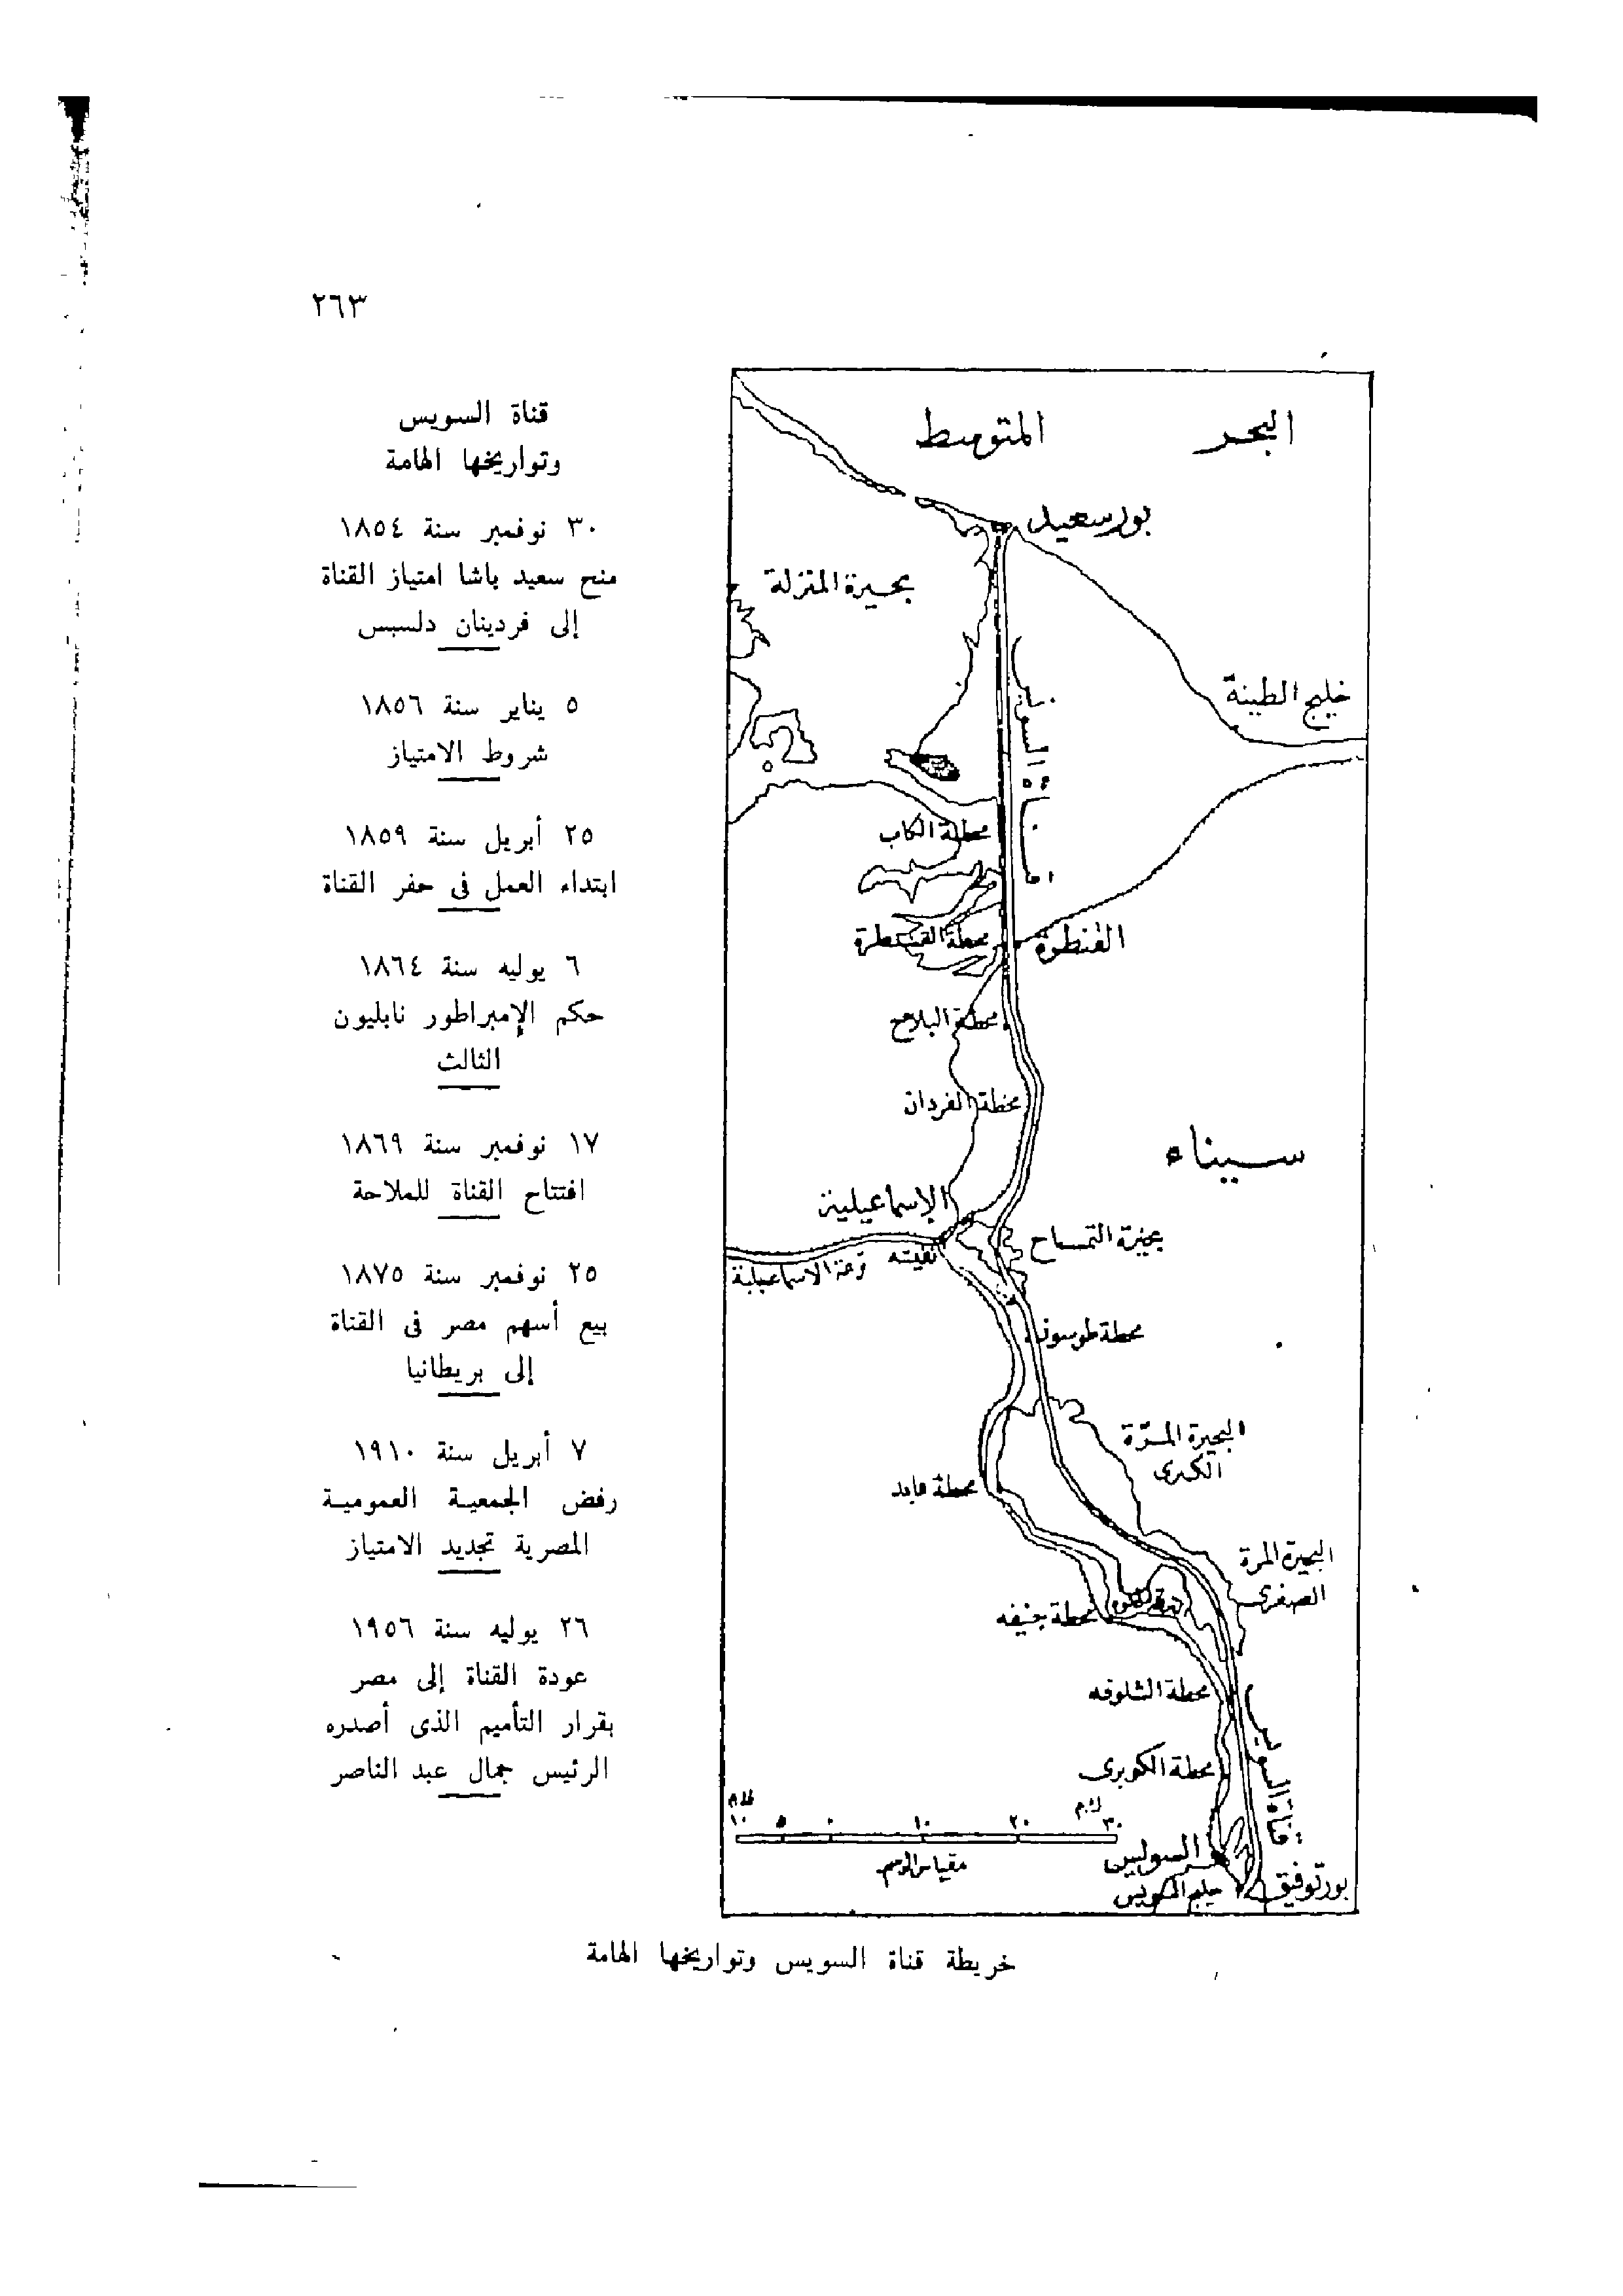 ٢٦٣
قناة السويس
وتواريخها الهامة
٣٠ نوفمبر سنة ١٨٥٤
منح سعيد باشا امتياز القناة
إلى فردينان دلسبس
٥ يناير سنة ١٨٥٦
شروط الامتياز
٢٥ أبريل سنة ١٨٥٩
ابتداء العمل فى حفر القناة
٦ يوليه سنة ١٨٦٤
حكم الإمبراطور نابليون
الثالث
١٧ نوفمبر سنة ١٨٦٩
افتتاح القناة للملاحة
٢٥ نوفمبر سنة ١٨٧٥
بيع أسهم مصر فى القناة
إلى بريطانيا
٧ أبريل سنة ١٩١٠
رفض الجمعية العمومية
المصرية تجديد الامتياز
٢٦ يوليه سنة ١٩٥٦
عودة القناة إلى مصر
بقرار التأميم الذى أصدره
الرئيس جمال عبد الناصر
البحر المتوسط
بورسعيد
بحيرة المنزلة
خليج الطينة
محطة الكاب
محطة القنطرة
القنطرة
محطة البلاح
محطة الفردان
سيناء
الإسماعيلية
بحيرة التمساح
نفيشه
ترعة الاسماعيلية
محطة طوسون
البحيرة المرّة
الكبرى
محطة فايد
البحيرة المرة
الصغرى
محطة جنيفه
محطة الشلوفه
محطة الكوبرى
قناة السويس
ك.م
١٠ ٥ ٠ ١٠ ٢٠ ٣٠
مقياس الرسم
السويس
خليج السويس
بور توفيق
خريطة قناة السويس وتواريخها الهامة